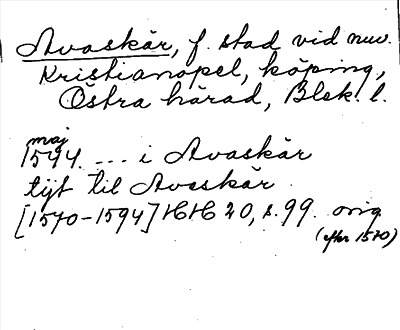 Avaskär, f. stad vid nuv.
Kristianopel, köping,
Östra härad, Blek. l.
maj
1544. --- i Avaskär
tijt til Aveskär
[1570-1594] HH 20, s. 99. orig
(efter 1570)